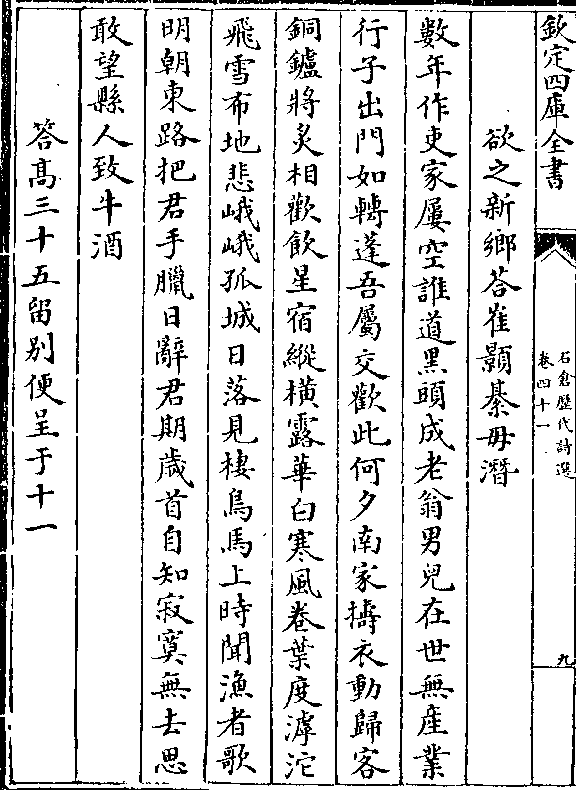 欽定四庫全書
石倉歷代詩選
卷四十一
九
欲之新鄉荅崔顥綦毋潛
數年作吏家屢空誰道黑頭成老翁男兒在世無産業
行子出門如轉蓬吾屬交歡此何夕南家擣衣動歸客
銅鑪將炙相歡飲星宿縱横露華白寒風卷葉度滹沱
飛雪布地悲峨峨孤城日落見棲烏馬上時聞漁者歌
明朝東路把君手臘日辭君期歲首自知寂寞無去思
敢望縣人致牛酒
荅髙三十五留别便呈于十一